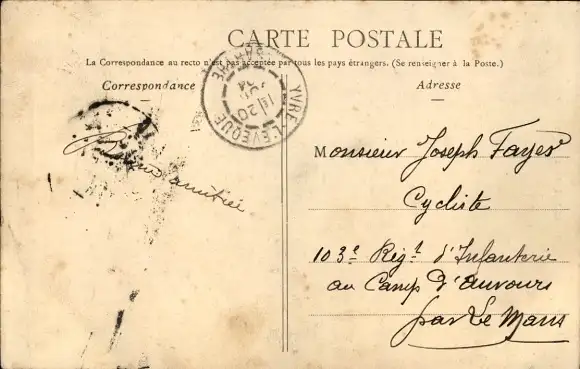 CARTE POSTALE
La Correspondance au recto n'est pas acceptée par tous les pays étrangers. (Se renseigner à la Poste.)
Correspondance
Adresse
YVRÉ-L'ÉVÊQUE
SARTHE
14 20
04
Bonne amitié
Monsieur Joseph Fayer
Cycliste
103e Régt d'Infanterie
au Camp d'Auvours
par Le Mans